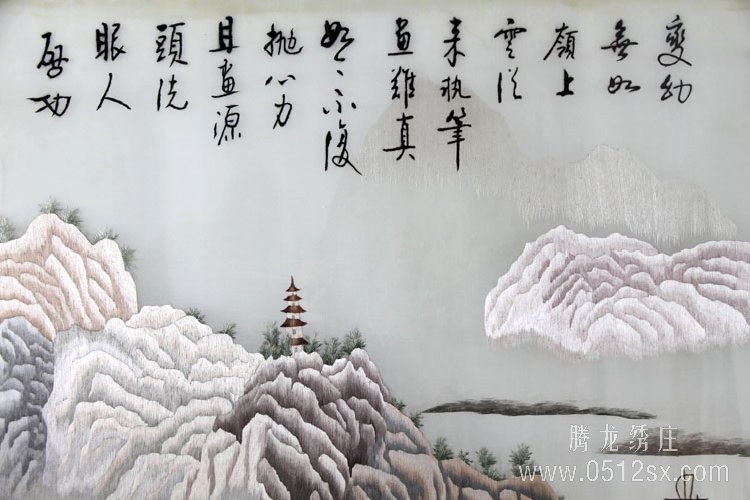 變幻
無如
嶺上
雲從
來執筆
畫難真
如今不復
拋心力
且畫源
頭洗
眼人
启功
腾龙绣庄
www.0512sx.com